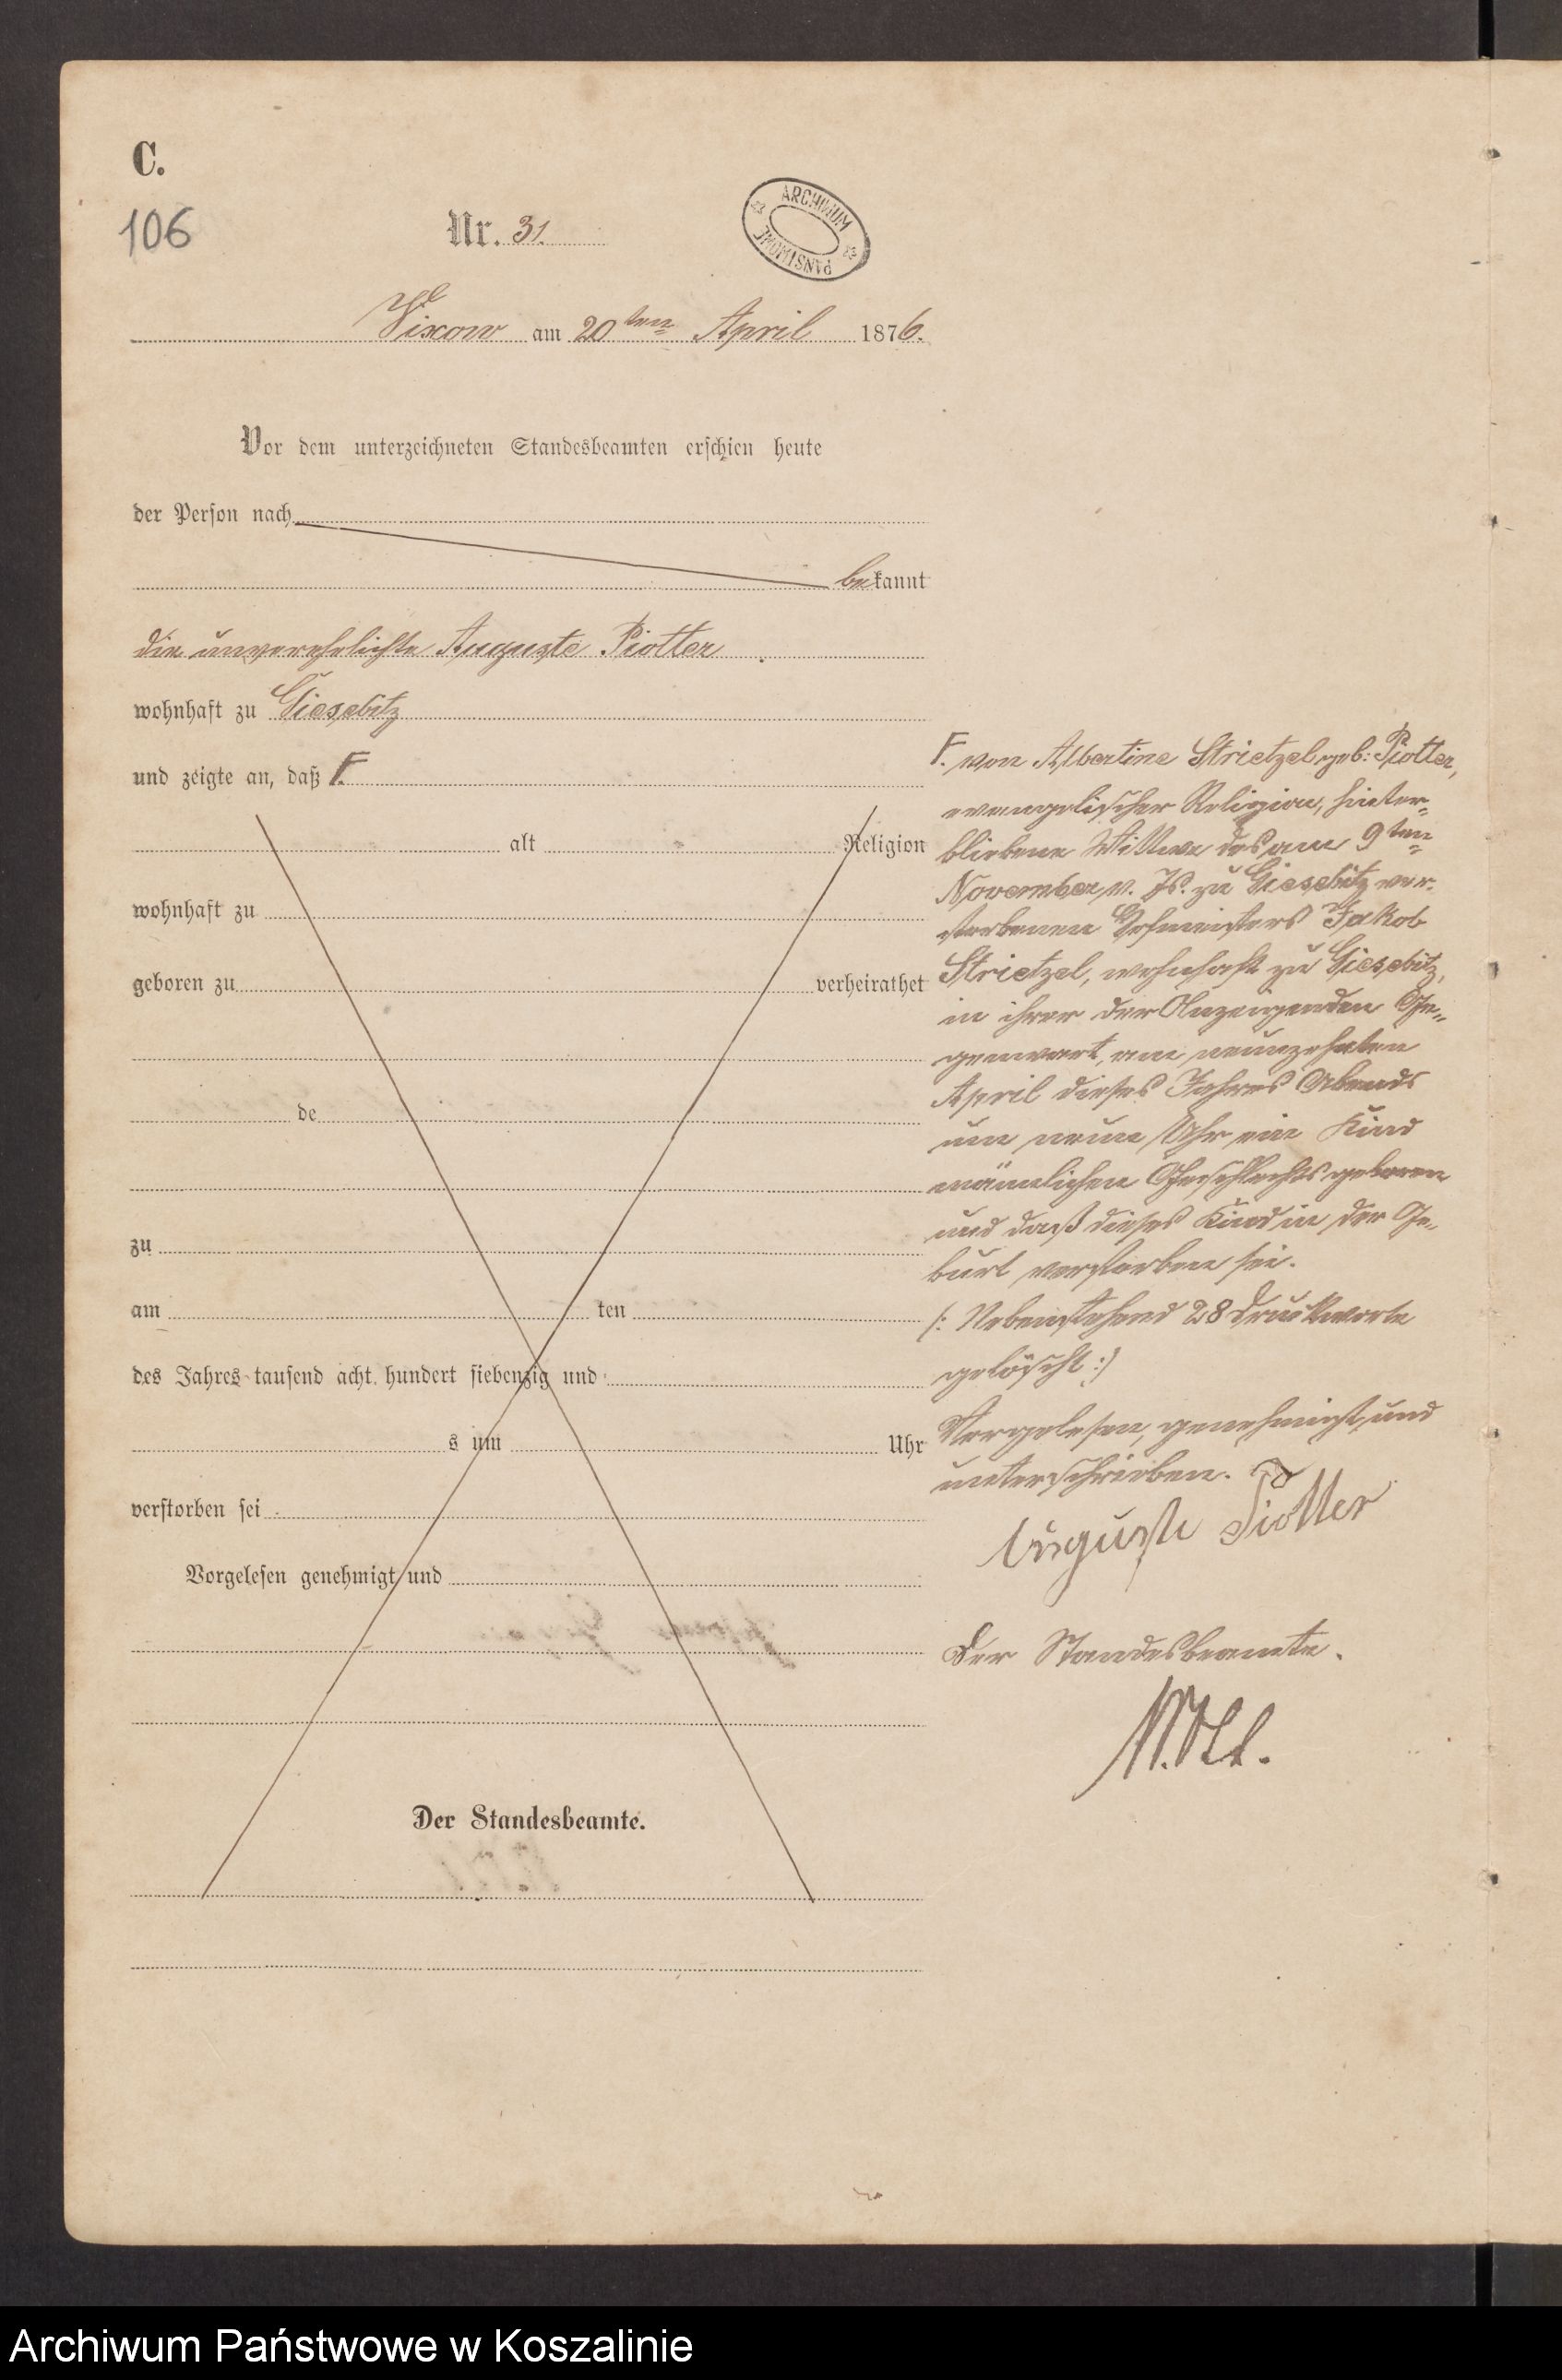 C.
106
Nr. 31.
ARCHIWUM
PAŃSTWOWE
Vixow am 20ten April 1876.
Vor dem unterzeichneten Standesbeamten erschien heute
der Person nach
bekannt
die unverehelichte Auguste Piotter
wohnhaft zu Giesebitz
und zeigte an, daß F.
alt Religion
wohnhaft zu
geboren zu verheirathet
de
zu
am ten
des Jahres tausend acht hundert siebenzig und
s um Uhr
verstorben sei
Vorgelesen genehmigt und
Der Standesbeamte.
F. von Albertine Strietzel geb: Piotter,
evangelischer Religion, hinter-
bliebene Wittwe des am 9ten
November v. Js. zu Giesebitz ver-
storbenen Jakob
Strietzel, wohnhaft zu Giesebitz,
in ihrer der Anzeigenden Ge-
genwart, am neunzehnten
April dieses Jahres Abends
um neun Uhr ein Kind
männlichen Geschlechts geboren
und daß dieses Kind in der Ge-
burt verstorben sei.
/: Nebenstehend 28 Druckworte
gelöscht :/
Vorgelesen, genehmigt und
unterschrieben.
Auguste Piotter
Der Standesbeamte.
Archiwum Państwowe w Koszalinie